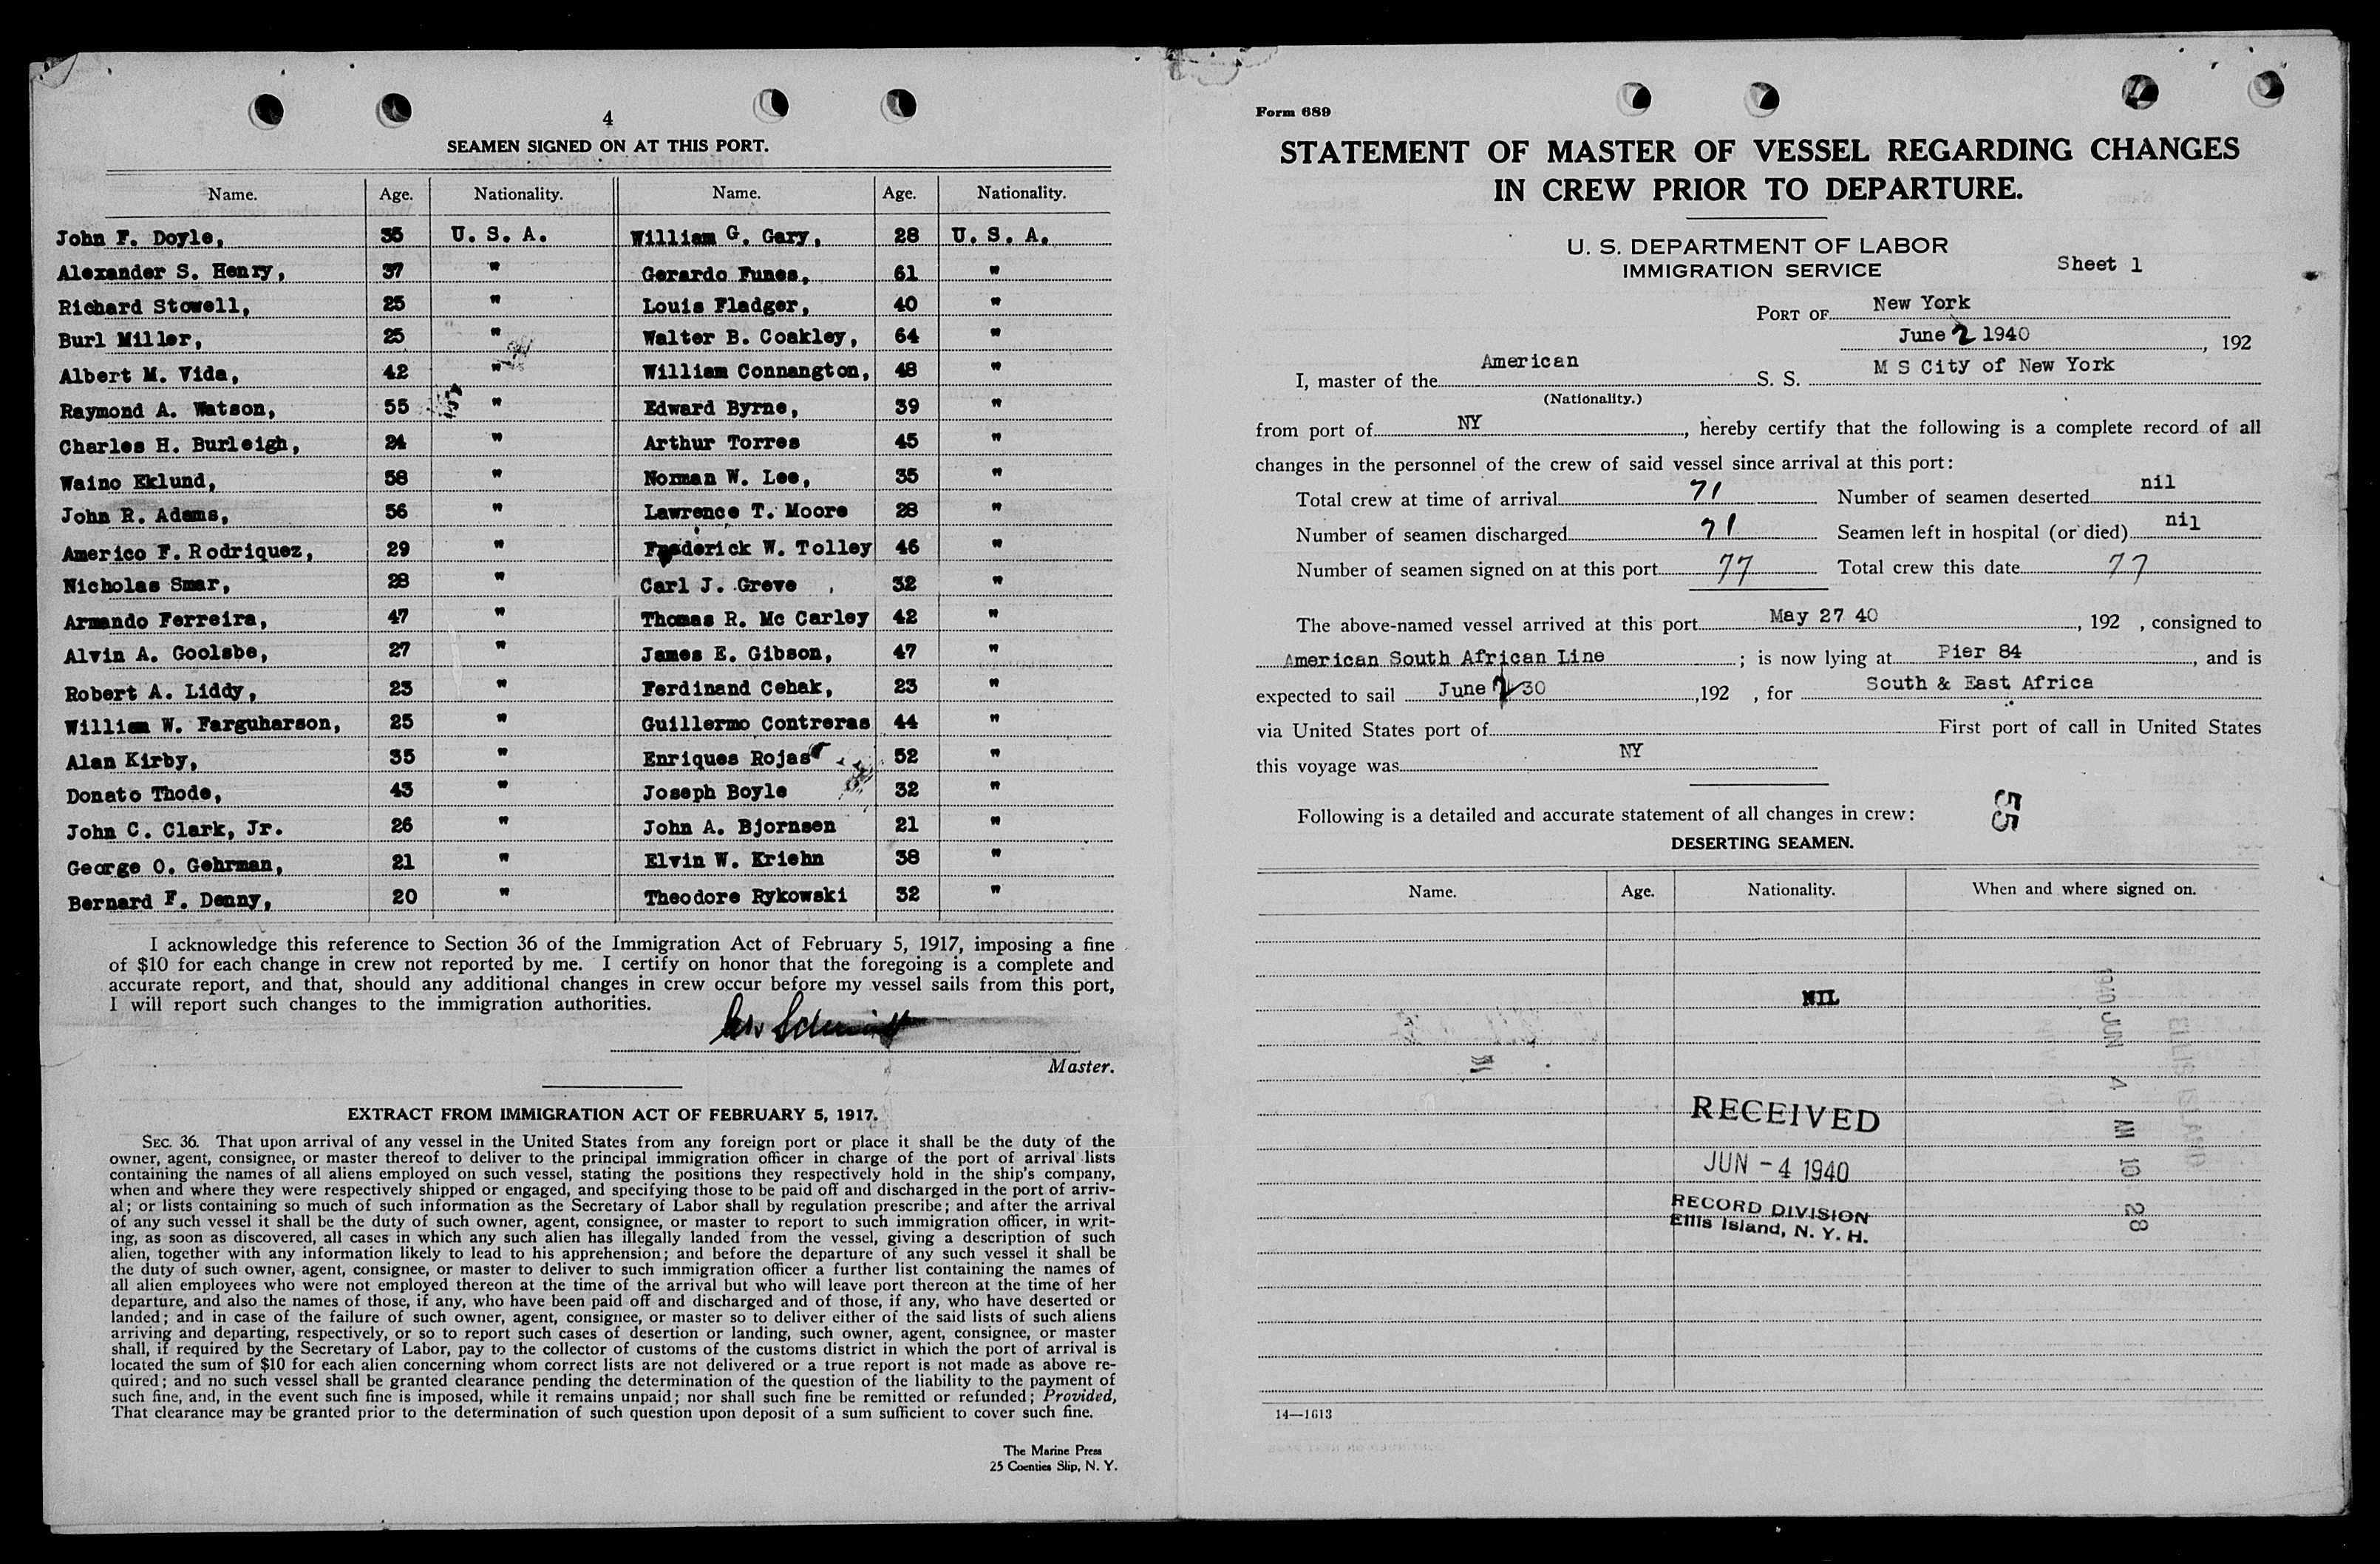 4
SEAMEN SIGNED ON AT THIS PORT.
Name. Age. Nationality. Name. Age. Nationality.
John F. Doyle, 35 U. S. A. William G. Gary, 28 U. S. A.
Alexander S. Henry, 37 " Gerardo Funes, 61 "
Richard Stowell, 25 " Louis Fladger, 40 "
Burl Miller, 25 " Walter B. Coakley, 64 "
Albert M. Vida, 42 " William Connangton, 48 "
Raymond A. Watson, 55 " Edward Byrne, 39 "
Charles H. Burleigh, 24 " Arthur Torres 45 "
Waino Eklund, 58 " Norman W. Lee, 35 "
John R. Adams, 56 " Lawrence T. Moore 28 "
Americo F. Rodriquez, 29 " Frederick W. Tolley 46 "
Nicholas Smar, 28 " Carl J. Greve , 32 "
Armando Ferreira, 47 " Thomas R. Mc Carley 42 "
Alvin A. Goolsbe, 27 " James E. Gibson, 47 "
Robert A. Liddy, 23 " Ferdinand Cehak, 23 "
William W. Farguharson, 25 " Guillermo Contreras 44 "
Alan Kirby, 35 " Enriques Rojas 52 "
Donato Thode, 43 " Joseph Boyle 32 "
John C. Clark, Jr. 26 " John A. Bjornsen 21 "
George O. Gehrman, 21 " Elvin W. Kriehn 38 "
Bernard F. Denny, 20 " Theodore Rykowski 32 "
I acknowledge this reference to Section 36 of the Immigration Act of February 5, 1917, imposing a fine
of $10 for each change in crew not reported by me. I certify on honor that the foregoing is a complete and
accurate report, and that, should any additional changes in crew occur before my vessel sails from this port,
I will report such changes to the immigration authorities.
Schmidt
Master.
EXTRACT FROM IMMIGRATION ACT OF FEBRUARY 5, 1917.
SEC. 36. That upon arrival of any vessel in the United States from any foreign port or place it shall be the duty of the
owner, agent, consignee, or master thereof to deliver to the principal immigration officer in charge of the port of arrival lists
containing the names of all aliens employed on such vessel, stating the positions they respectively hold in the ship's company,
when and where they were respectively shipped or engaged, and specifying those to be paid off and discharged in the port of arriv-
al; or lists containing so much of such information as the Secretary of Labor shall by regulation prescribe; and after the arrival
of any such vessel it shall be the duty of such owner, agent, consignee, or master to report to such immigration officer, in writ-
ing, as soon as discovered, all cases in which any such alien has illegally landed from the vessel, giving a description of such
alien, together with any information likely to lead to his apprehension; and before the departure of any such vessel it shall be
the duty of such owner, agent, consignee, or master to deliver to such immigration officer a further list containing the names of
all alien employees who were not employed thereon at the time of the arrival but who will leave port thereon at the time of her
departure, and also the names of those, if any, who have been paid off and discharged and of those, if any, who have deserted or
landed; and in case of the failure of such owner, agent, consignee, or master so to deliver either of the said lists of such aliens
arriving and departing, respectively, or so to report such cases of desertion or landing, such owner, agent, consignee, or master
shall, if required by the Secretary of Labor, pay to the collector of customs of the customs district in which the port of arrival is
located the sum of $10 for each alien concerning whom correct lists are not delivered or a true report is not made as above re-
quired; and no such vessel shall be granted clearance pending the determination of the question of the liability to the payment of
such fine, and, in the event such fine is imposed, while it remains unpaid; nor shall such fine be remitted or refunded; Provided,
That clearance may be granted prior to the determination of such question upon deposit of a sum sufficient to cover such fine.
The Marine Press
25 Coenties Slip, N. Y.
Form 689
STATEMENT OF MASTER OF VESSEL REGARDING CHANGES
IN CREW PRIOR TO DEPARTURE.
U. S. DEPARTMENT OF LABOR
IMMIGRATION SERVICE Sheet 1
PORT OF New York
June 2 1940 , 192
I, master of the American S. S. M S City of New York
(Nationality.)
from port of NY , hereby certify that the following is a complete record of all
changes in the personnel of the crew of said vessel since arrival at this port:
Total crew at time of arrival 71 Number of seamen deserted nil
Number of seamen discharged 71 Seamen left in hospital (or died) nil
Number of seamen signed on at this port 77 Total crew this date 77
The above-named vessel arrived at this port May 27 40 , 192 , consigned to
American South African Line ; is now lying at Pier 84 , and is
expected to sail June 2 30 ,192 , for South & East Africa
via United States port of First port of call in United States
this voyage was NY
Following is a detailed and accurate statement of all changes in crew:
55
DESERTING SEAMEN.
Name. Age. Nationality. When and where signed on.
NIL
RECEIVED
JUN - 4 1940
RECORD DIVISION
Ellis Island, N. Y. H.
1940 JUN 4 AM 10 28
ELLIS ISLAND
14—1613